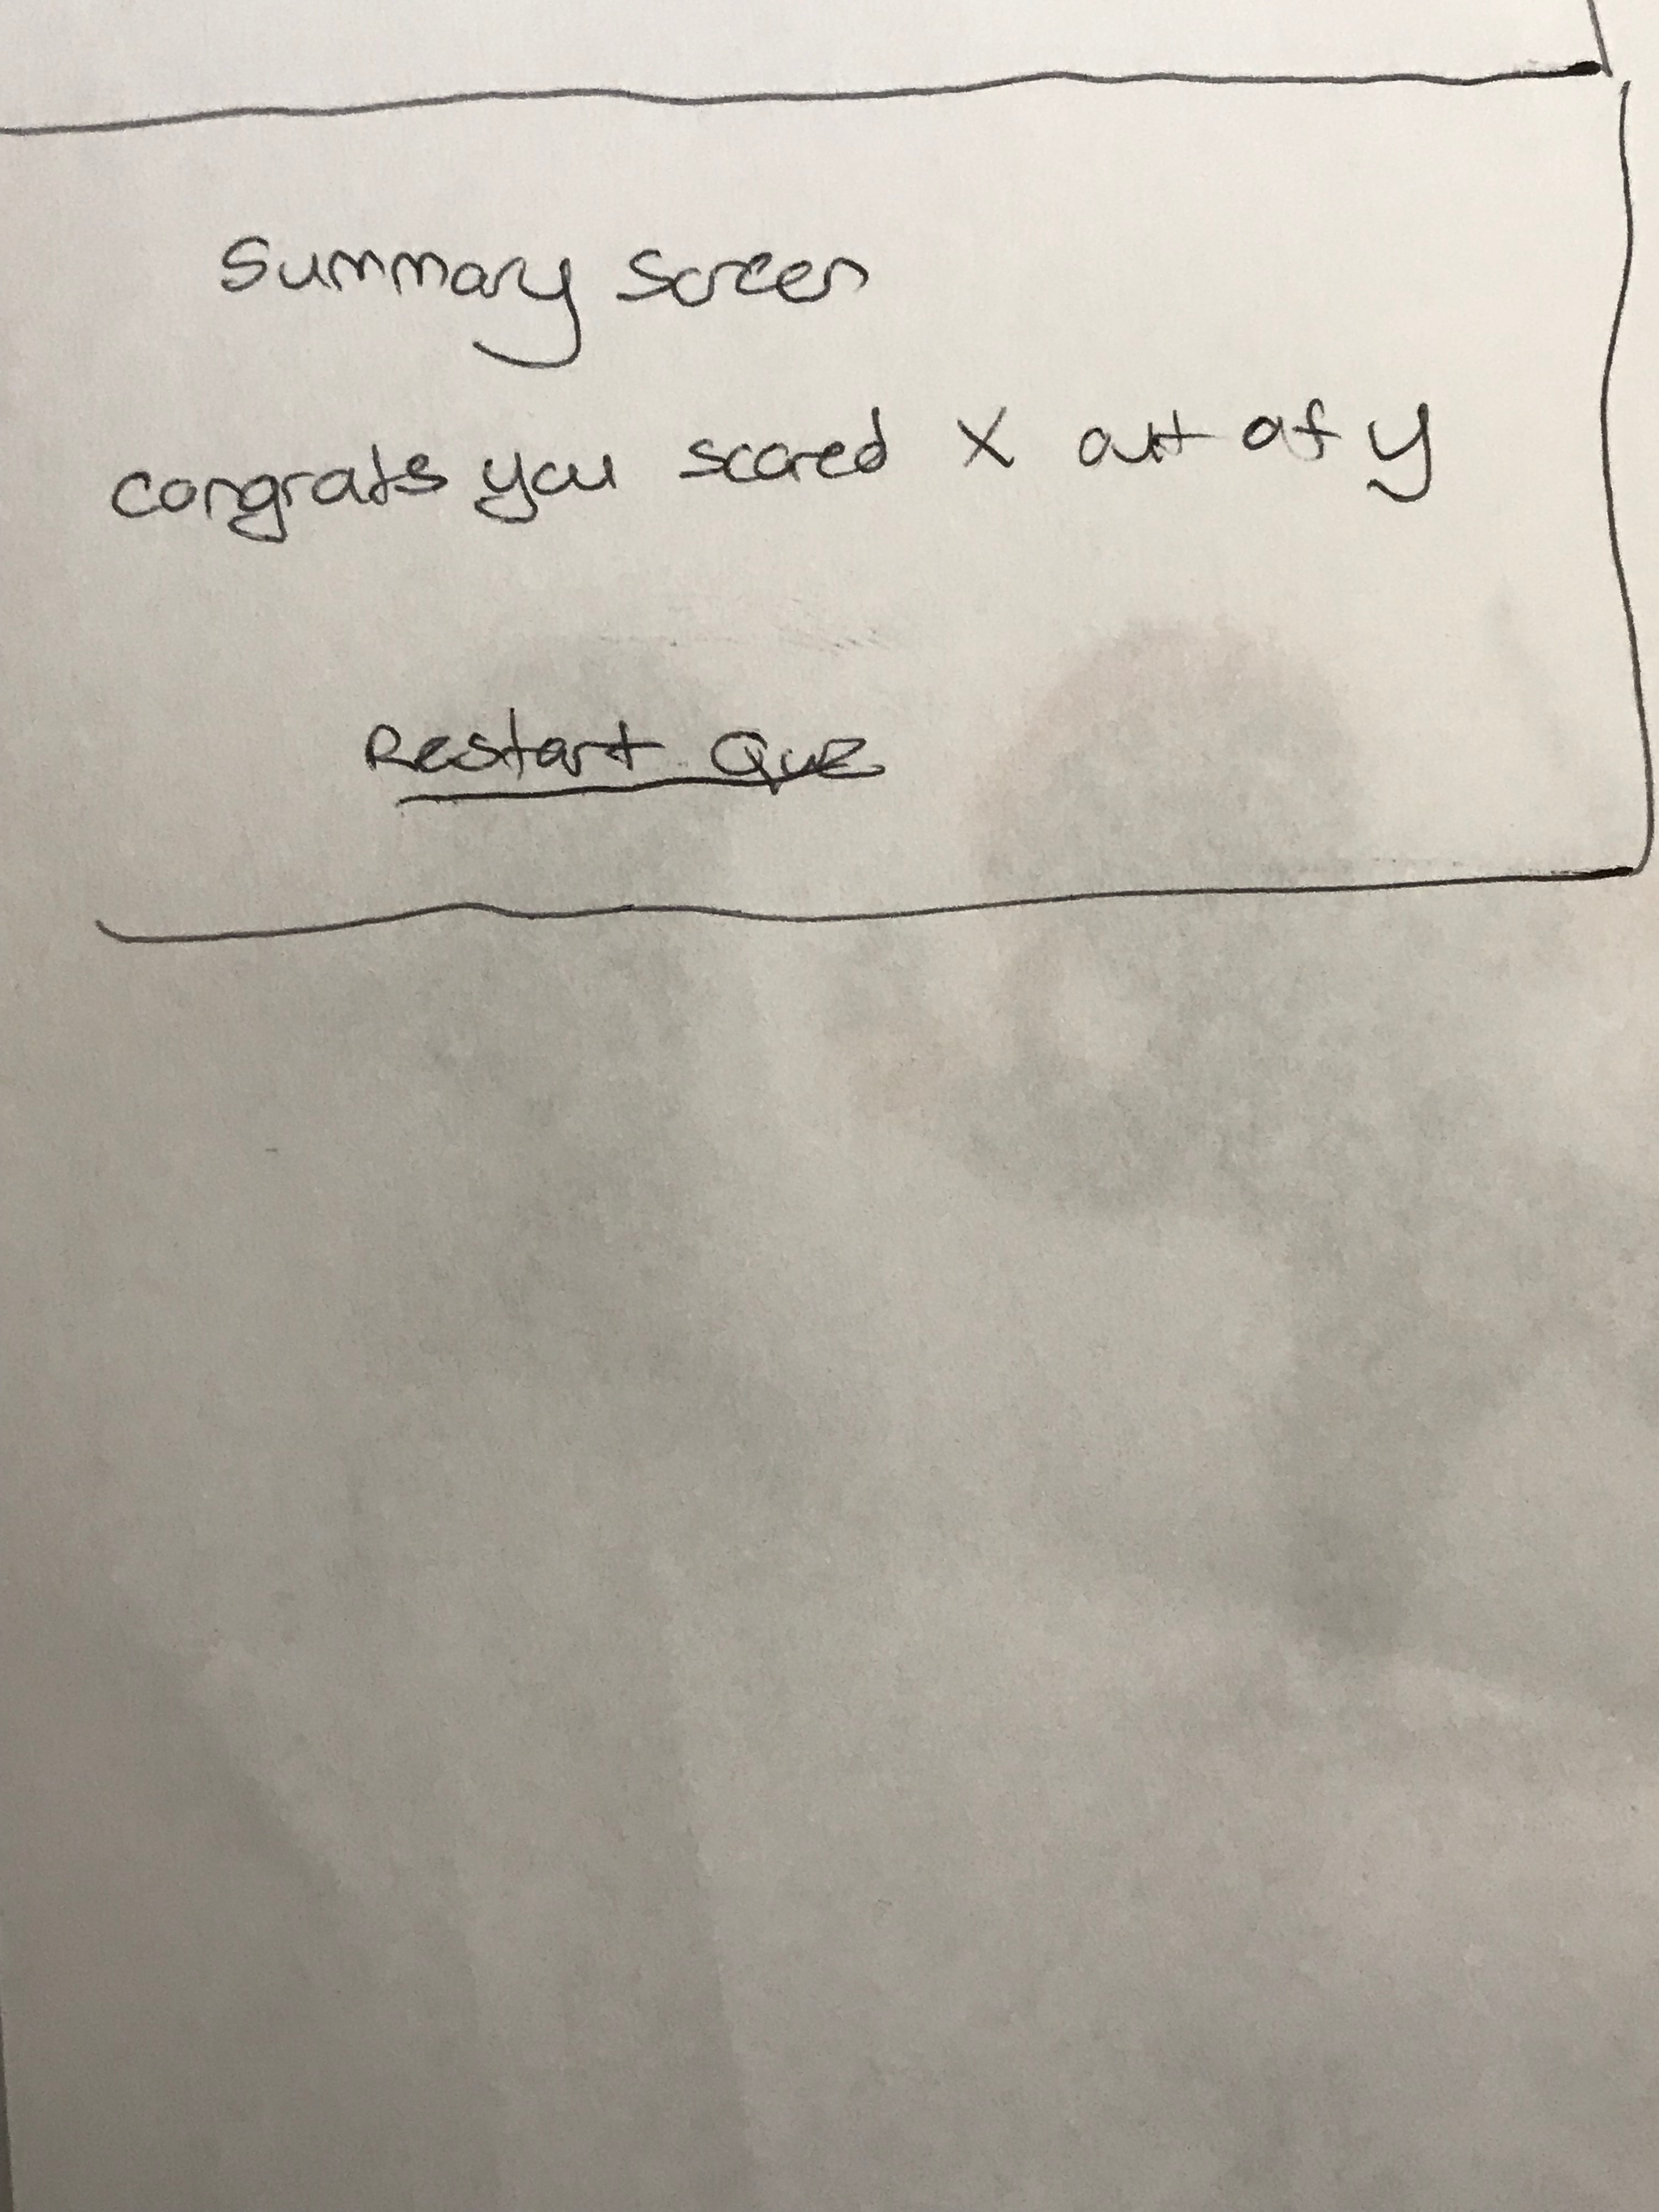 Summary Screen
congrats you scored X out of y
Restart Quiz